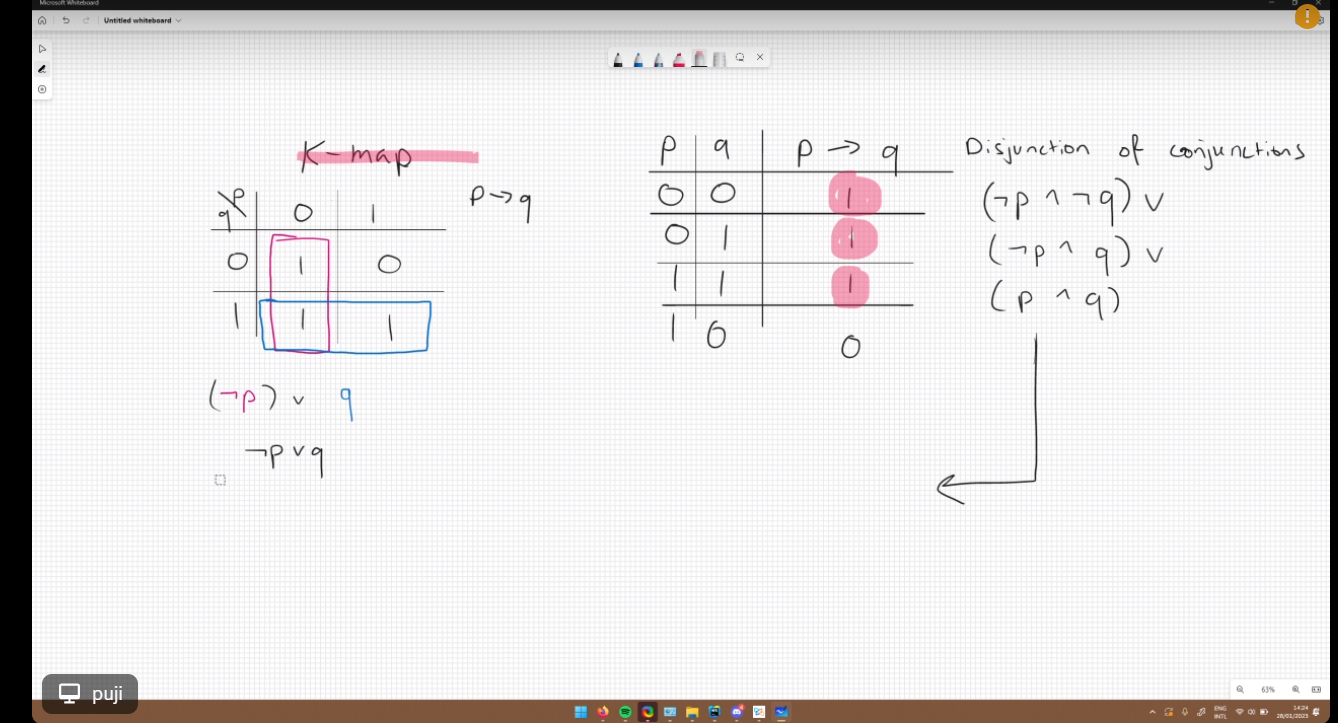 Microsoft Whiteboard
Untitled whiteboard
K-map
p
q
0 1
p → q
0 1 0
1 1 1
(¬p) ∨ q
¬p ∨ q
p q p → q
0 0 1
0 1 1
1 1 1
1 0 0
Disjunction of conjunctions
(¬p ∧ ¬q) ∨
(¬p ∧ q) ∨
(p ∧ q)
puji
63%
ENG
INTL
14:24
28/01/2025